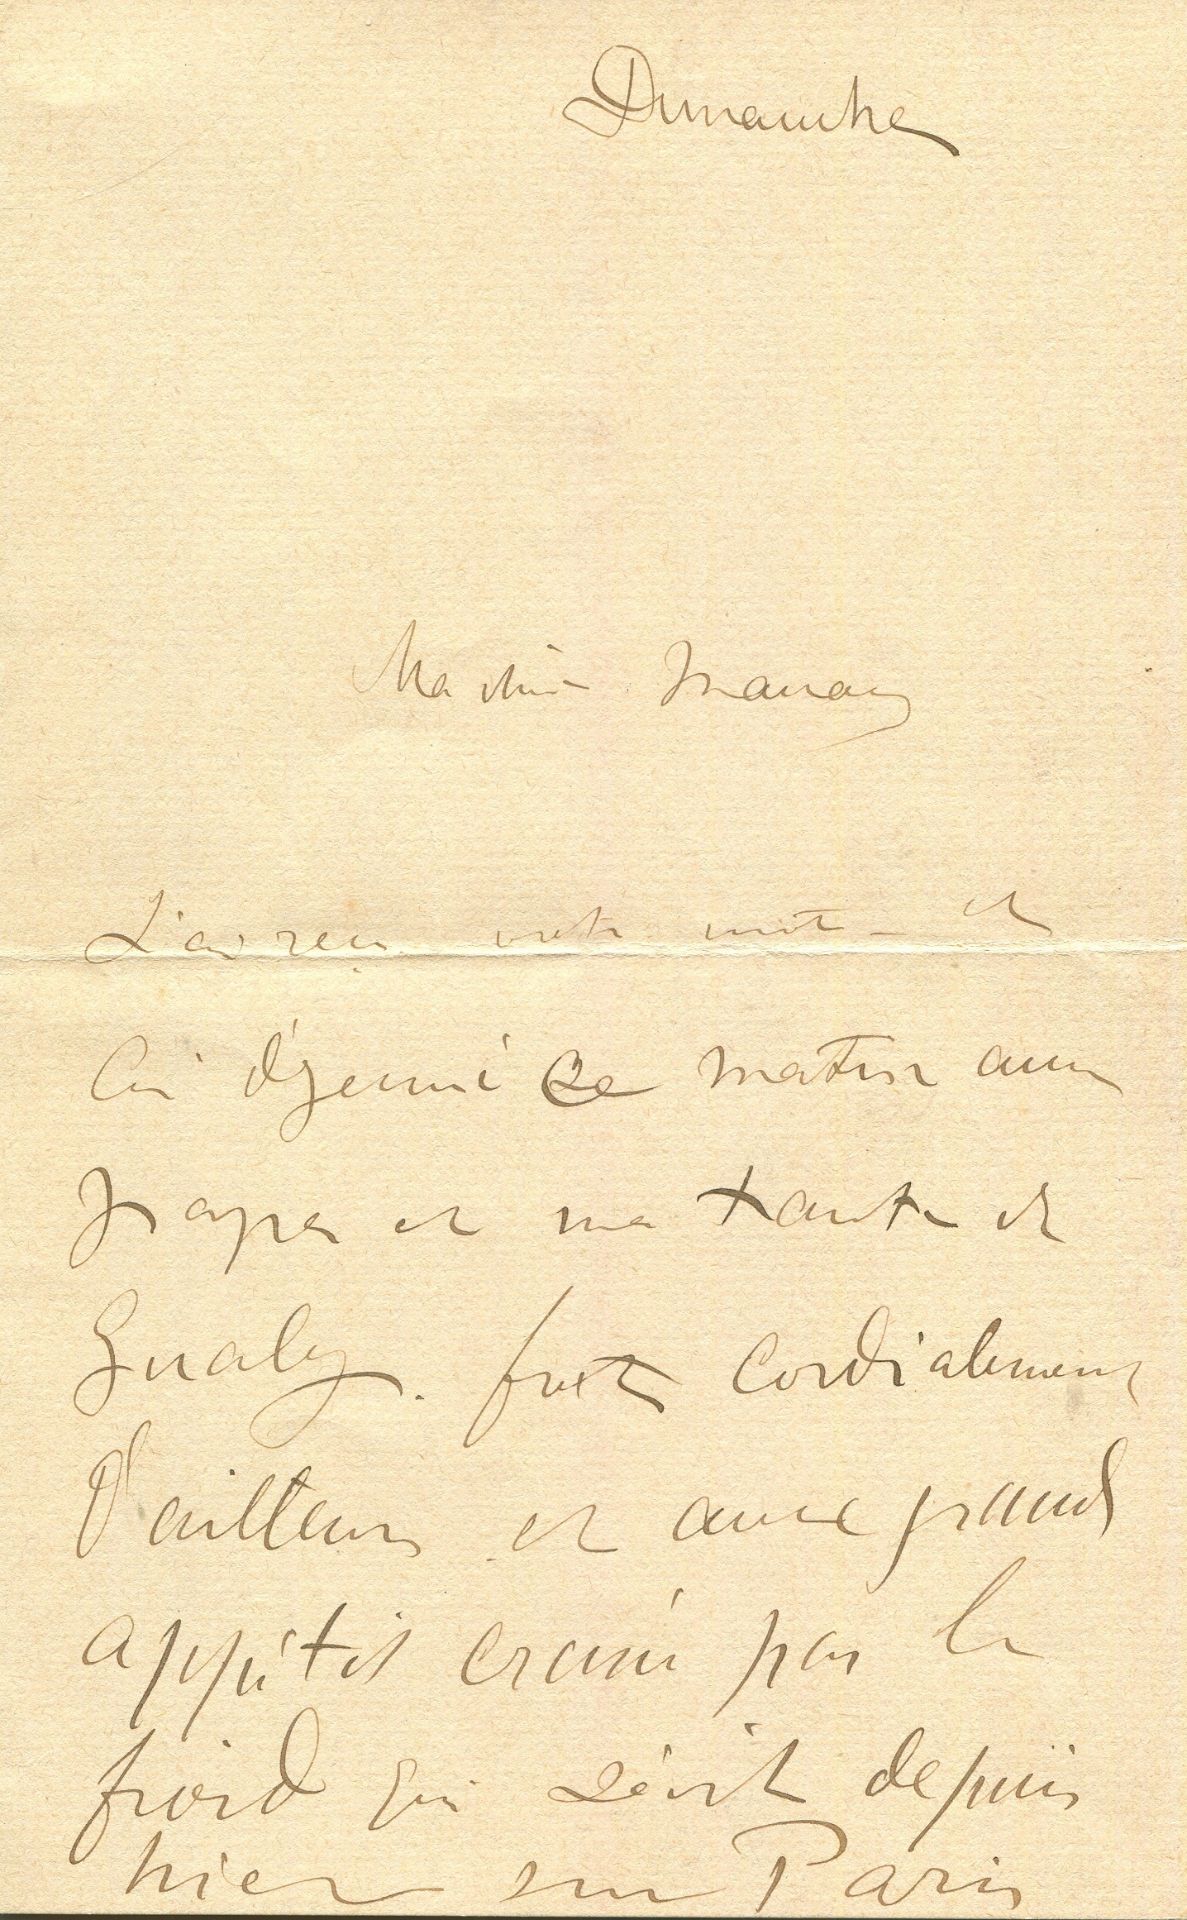 Dimanche
Ma chère maman
J'ai reçu votre mot et
ai déjeuné ce matin avec
papa et ma tante et
Gualy. fort cordialement
d'ailleurs et avec grand
appétit creusé par le
froid qui sévit depuis
hier sur Paris